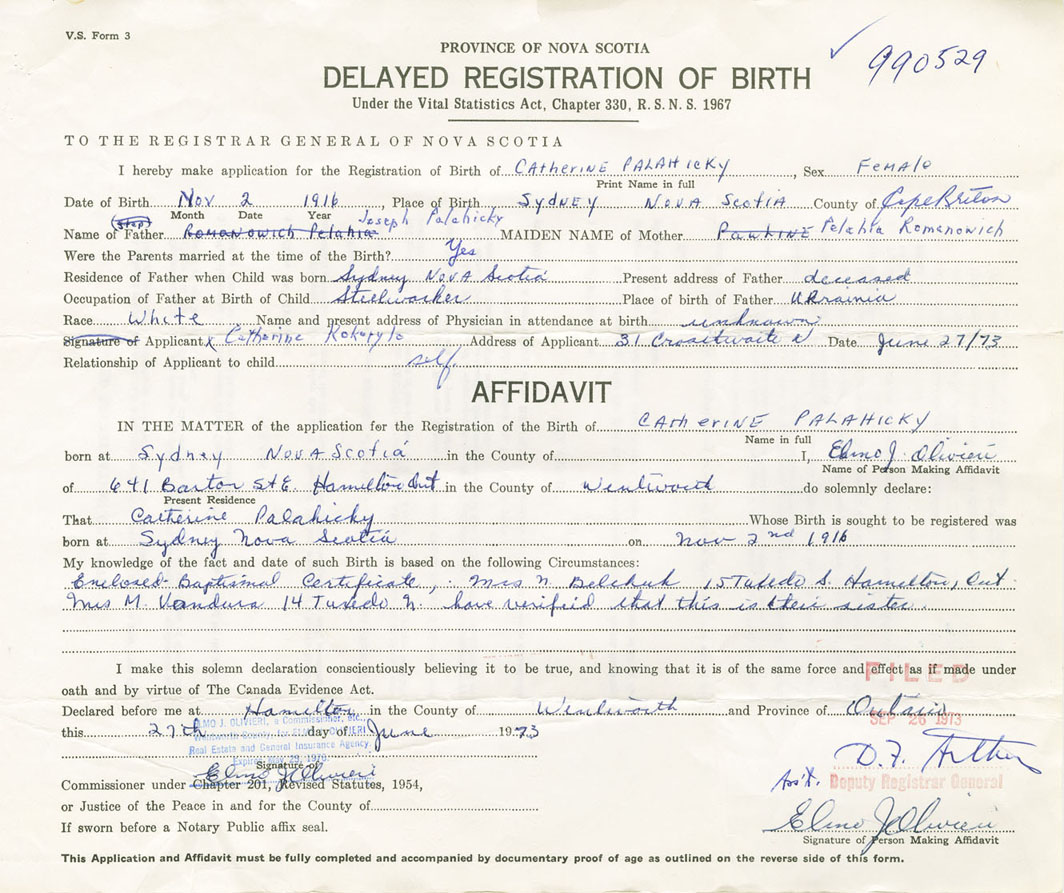 V.S. Form 3
PROVINCE OF NOVA SCOTIA
990529
DELAYED REGISTRATION OF BIRTH
Under the Vital Statistics Act, Chapter 330, R. S. N. S. 1967
TO THE REGISTRAR GENERAL OF NOVA SCOTIA
I hereby make application for the Registration of Birth of CATHERINE PALAHICKY, Sex FEMALE
Print Name in full
Date of Birth Nov 2 1916, Place of Birth SYDNEY NOVA SCOTIA County of Cape Breton
Month Date Year
(Step) Joseph Palahicky
Name of Father Romanowich Pelahia MAIDEN NAME of Mother PAWLINE Pelahia Romanowich
Were the Parents married at the time of the Birth? Yes
Residence of Father when Child was born Sydney NOVA Scotia Present address of Father deceased
Occupation of Father at Birth of Child Steelworker Place of birth of Father UKrainia
Race White Name and present address of Physician in attendance at birth unknown
Signature of Applicant x Catherine Kokopylo Address of Applicant 31 Date June 27/73
Relationship of Applicant to child self.
AFFIDAVIT
IN THE MATTER of the application for the Registration of the Birth of CATHERINE PALAHICKY
Name in full
born at Sydney NOVA Scotia in the County of I, Elmo J. Olivieri
Name of Person Making Affidavit
of 641 Barton St E. Hamilton Ont in the County of Wentworth do solemnly declare:
Present Residence
That Catherine Palahicky Whose Birth is sought to be registered was
born at Sydney Nova Scotia on Nov 2nd 1916
My knowledge of the fact and date of such Birth is based on the following Circumstances:
Enclosed Baptismal Certificate, Mrs N. Belchuk 15 Tuxedo S. Hamilton, Ont.
Mrs M. Vandura 14 Tuxedo N. have verified that this is their sister.
I make this solemn declaration conscientiously believing it to be true, and knowing that it is of the same force and effect as if made under
FILED
oath and by virtue of The Canada Evidence Act.
Declared before me at Hamilton in the County of Wentworth and Province of Ontario
SEP 26 1973
ELMO J. OLIVIERI, a Commissioner, etc.,
this 27th day of June 1973
Real Estate and General Insurance Agency.
Expires May 29, 1976.
D.F. Arthur
Signature of
Elmo J Olivieri
Ass't. Deputy Registrar General
Commissioner under Chapter 201, Revised Statutes, 1954,
or Justice of the Peace in and for the County of
Elmo J Olivieri
If sworn before a Notary Public affix seal.
Signature of Person Making Affidavit
This Application and Affidavit must be fully completed and accompanied by documentary proof of age as outlined on the reverse side of this form.